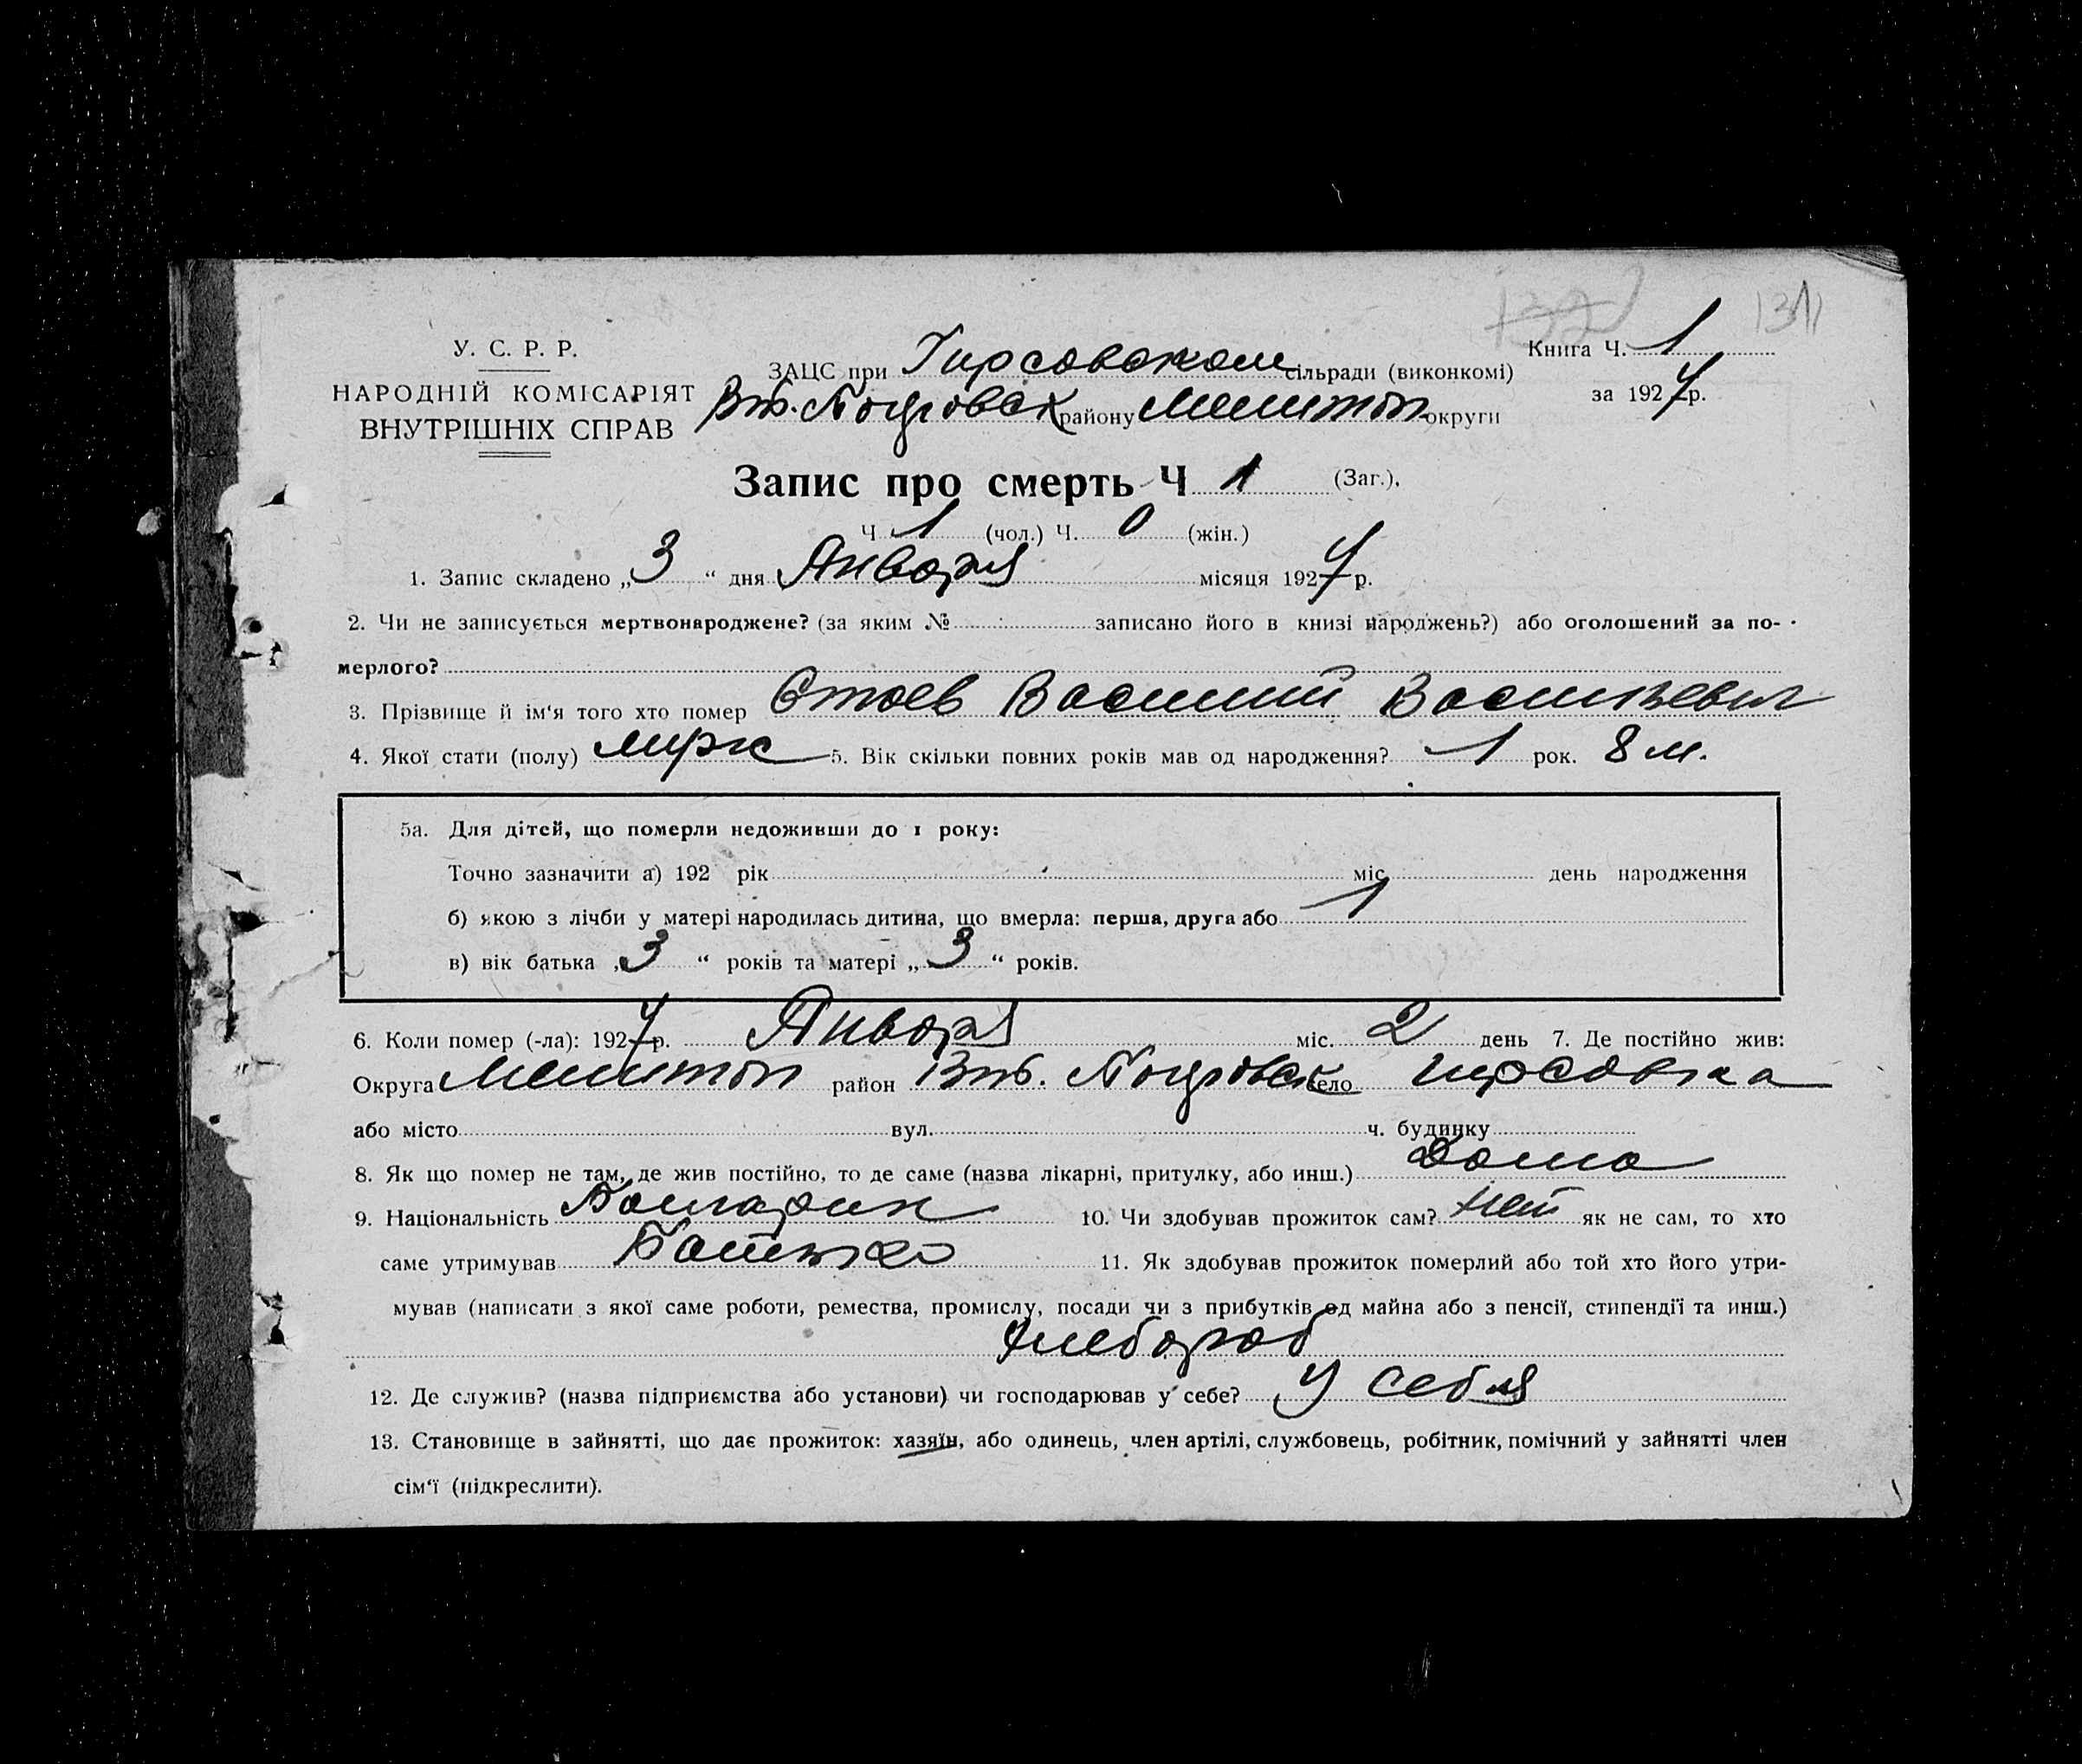 131
У. С. Р. Р.
НАРОДНІЙ КОМІСАРІЯТ
ВНУТРІШНІХ СПРАВ
Книга Ч. 1
за 1927 р.
ЗАЦС при Гирсовском сільради (виконкомі)
району Мелитоп округи
Запис про смерть Ч 1 (Заг.).
Ч 1 (чол.) Ч. 0 (жін.)
1. Запис складено „3“ дня Января місяця 1927 р.
2. Чи не записується мертвонароджене? (за яким № записано його в книзі народжень?) або оголошений за по-
мерлого?
3. Прізвище й ім'я того хто помер Стоев Василий Васильевич
4. Якої стати (полу) 5. Вік скільки повних років мав од народження? 1 рок. 8 м.
5а. Для дітей, що померли недоживши до 1 року:
Точно зазначити а) 192 рік міс. день народження
б) якою з лічби у матері народилась дитина, що вмерла: перша, друга або 1
в) вік батька „3“ років та матері „3“ років.
6. Коли помер (-ла): 1927 р. Января міс. 2 день 7. Де постійно жив:
Округа Мелитоп район село Гирсовка
або місто вул. ч. будинку
8. Як що помер не там, де жив постійно, то де саме (назва лікарні, притулку, або инш.) Дома
9. Національність Болгарин 10. Чи здобував прожиток сам? Нет як не сам, то хто
саме утримував Батько 11. Як здобував прожиток померлий або той хто його утри-
мував (написати з якої саме роботи, ремества, промислу, посади чи з прибутків од майна або з пенсії, стипендії та инш.)
Хлебороб
12. Де служив? (назва підприємства або установи) чи господарював у себе? У себя
13. Становище в зайнятті, що дає прожиток: хазяїн, або одинець, член артілі, службовець, робітник, помічний у зайнятті член
сім'ї (підкреслити).